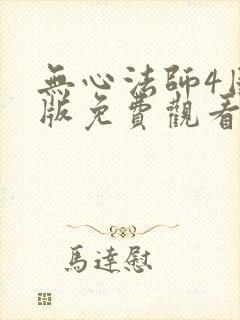 無心法師4
版免費觀看
馬達慰